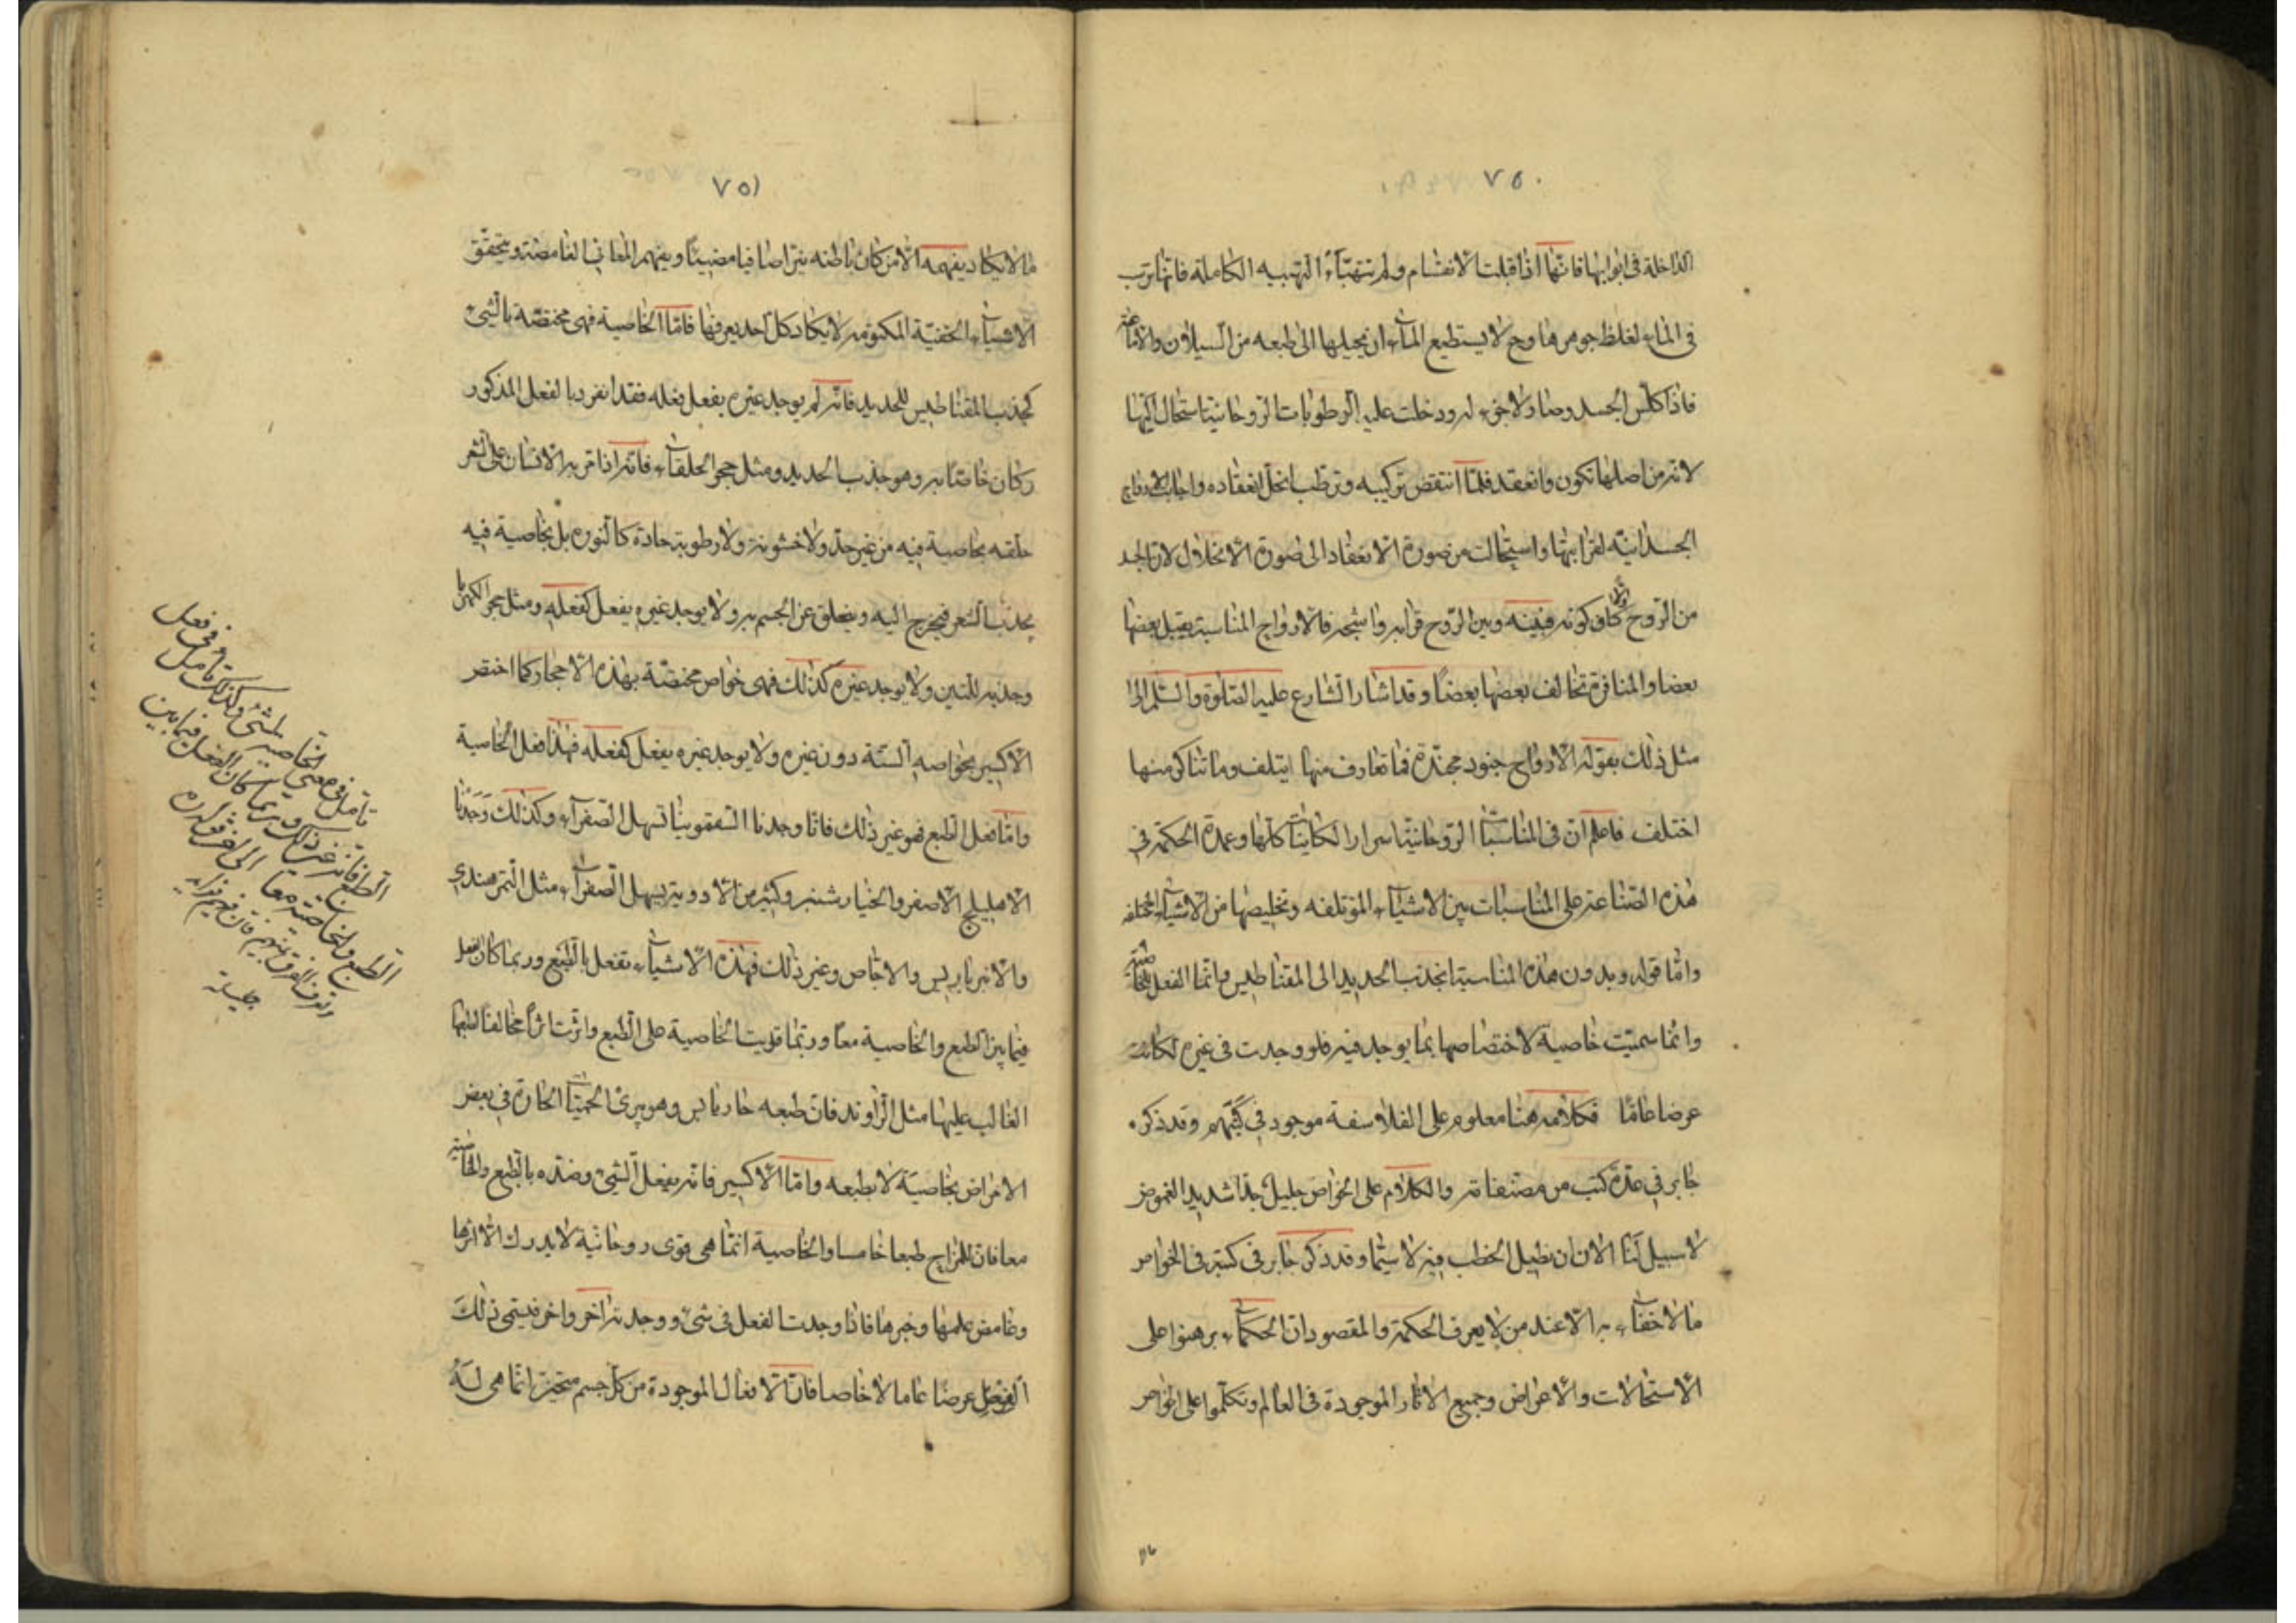 ٧٥٠
الداخلة فى ابوابها فانها اذا قبلت الانقسام ولم تتهيأ الكاملة فانها ترسب
فى الماء لغلظ جوهرها وح لا يستطيع الماء ان يحيلها الى طبعه من السيلان والاماعة
فاذا كلس الجسد وصار لا جزء له ودخلت عليه الرطوبات الروحانية استحال اليها
لانه من اصلها تكون وانعقد فلما انتقض تركيبه وترطب انحل انعقاده واجاب الارواح
الجسدانية لقرابتها واستحالت من صورة الانعقاد الى صورة الانحلال لان الجسد
من الروح كان كونه فبينه وبين الروح قرابة واشجة فالارواح المناسبة يقبل بعضها
بعضا والمنافرة تخالف بعضها بعضا وقد اشار الشارع عليه الصلوة والسلم الى
مثل ذلك بقوله الارواح جنود مجندة فما تعارف منها ايتلف وما تناكر منها
اختلف فاعلم ان فى المناسبات الروحانية اسرار الكاينات كلها وعمدة الحكمة فى
هذه الصناعة على المناسبات بين الاشياء المؤتلفه وتخليصها من الاشياء المختلفه
واما قوله وبدون هذه المناسبة انجذب الحديد الى المقناطيس وانما الفعل للخاصية
وانما سميت خاصية لاختصاصها بما يوجد فيه فلو وجدت فى غيره لكانت
عرضا عاما فكلامه هنا معلوم على الفلاسفة موجود فى كتبهم وقد ذكره
جابر فى عدة كتب من مصنفاته والكلام على الخواص جليل جدا شديد الغموض
لا سبيل لنا الان ان نطيل الخطب فيه لا سيما وقد ذكر جابر فى كتبه فى الخواص
ما لا خفاء به الا عند من لا يعرف الحكمة والمقصود ان الحكماء برهنوا على
الاستحالات والاعراض وجميع الاثار الموجودة فى العالم وتكلموا على الخواص
٧٥١
ما لا يكاد يفهمه الا من كان باطنه نيرا صافيا مضيئا ويفهم المعانى الغامضة ويتحقق
الاشياء الخفية المكتومه لا يكاد كل احد يعرفها فاما الخاصية فهى مختصة بالشىء
كجذب المقناطيس للحديد فانه لم يوجد غيره يفعل فعله فقد انفرد بالفعل المذكور
وكان خاصا به وهو جذب الحديد ومثل حجر الحلقاء فانه اذا مر به الانسان على الشعر
حلقه بخاصية فيه من غير حدة ولا خشونة ولا رطوبة حادة كالنوره بل بخاصية فيه
يجذب الشعر فيخرج اليه ويعلق عن الجسم به ولا يوجد غيره يفعل كفعله ومثل حجر الكهربا
وجذبه للتبن ولا يوجد غيره كذلك فهى خواص مختصة بهذه الاحجار كما اختص
الاكسير بخواصه الستة دون غيره ولا يوجد غيره يفعل كفعله فهذا فعل الخاصية
واما فعل الطبع فهو غير ذلك فانا وجدنا السقمونيا تسهل الصفراء وكذلك وجدنا
الاهليلج الاصفر والخيار شنبر وكثير من الادوية يسهل الصفراء مثل التمر هندى
والانبرباريس والاجاص وغير ذلك فهذه الاشياء تفعل بالطبع وربما كان الفعل
فيما بين الطبع والخاصية معا وربما قويت الخاصية على الطبع واثرت اثرا مخالفا لطبعها
الغالب عليها مثل الراوند فان طبعه حار يابس وهو يبرئ الحميات الحارة فى بعض
الامراض بخاصية لا بطبعه واما الاكسير فانه يفعل الشىء وضده بالطبع والخاصية
معا فان للمزاج طبعا خامسا والخاصية انما هى قوى روحانية لا يدرك الا اثرها
وغامض علمها وخبرها فاذا وجدت الفعل فى شىء ووجدته اخر واخر فيسمى ذلك
الفعل عرضا عاما لا خاصا فان الافعال الموجودة من كل جسم متحيز انما هى له
تأمل فى معنى الخاصيه للشئ وكذلك تأمل فى فعل
الطبع فانه غير ذلك وربما كان الفعل فيما بين
الطبع والخاصية معا